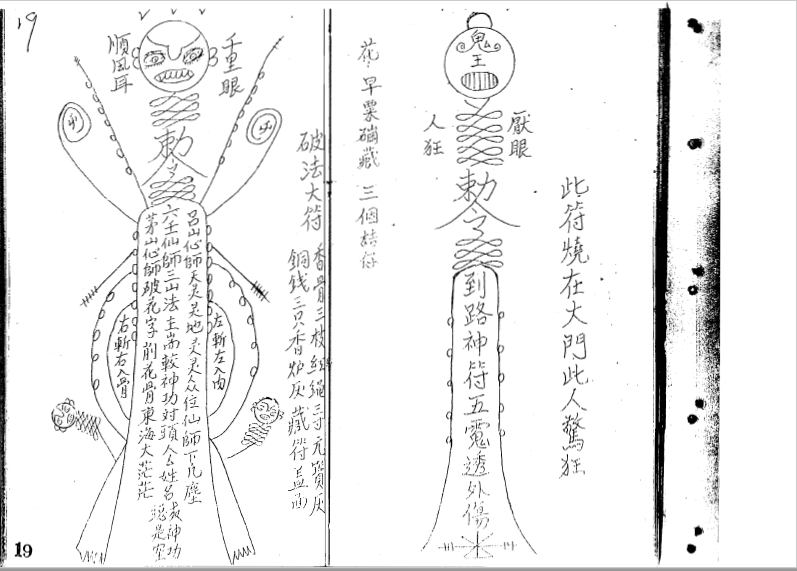 此符燒在大門此人驚狂
鬼王
厭眼
人狂
勅令
到路神符五 透外傷
花 早 藏 三個桔仔
19
千里眼
順風耳
勅令
破法大符
香骨三枝紅繩三寸元寶灰
銅銭三只香炉灰藏符盖面
呂山仙師天灵灵地灵灵众位仙師下凡塵
六壬仙師三山法主尚較神功対頭人厶姓名 神功
茅山仙師破花字 花骨東海大茫茫 總是空
左斬左入肉
右斬右入骨
19